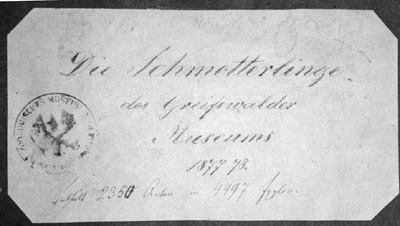 Die Schmetterlinge
des Greifswalder
Museums
1877/78.
Enthält 2350 Arten in 4497 Expln.